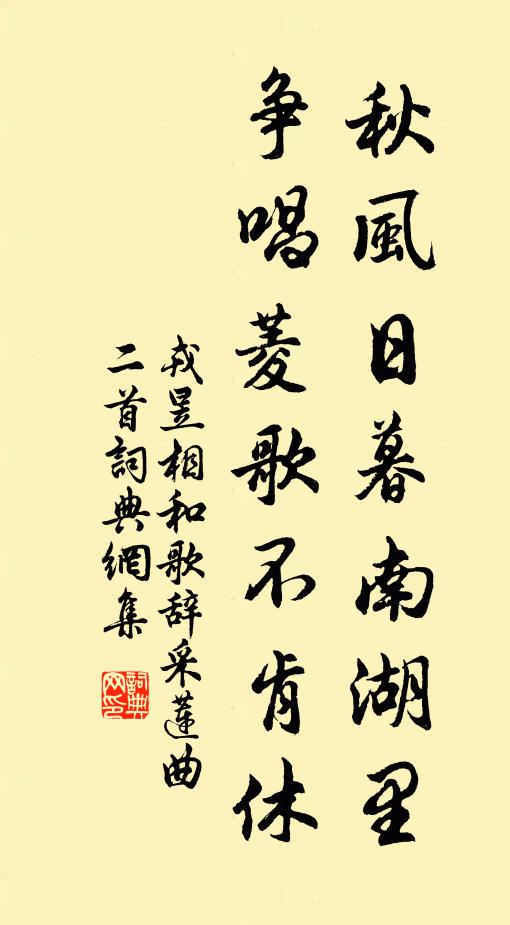 秋風日暮南湖里
争唱菱歌不肯休
戎昱相和歌辞采蓮曲
二首詞典網集
詞典網印